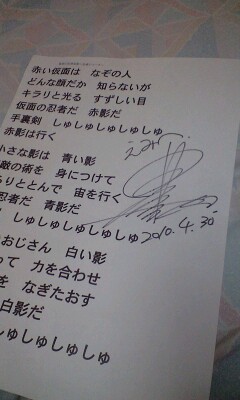 赤い仮面は　なぞの人
どんな顔だか　知らないが
キラリと光る　すずしい目
仮面の忍者だ　赤影だ
手裏剣　しゅしゅしゅしゅしゅ
赤影は行く
小さな影は　青い影
敵の術を　身につけて
らりととんで　宙を行く
忍者だ　青影だ
しゅしゅしゅしゅしゅ
2010.4.30
おじさん　白い影
って　力を合わせ
を　なぎたおす
白影だ
しゅしゅしゅしゅ